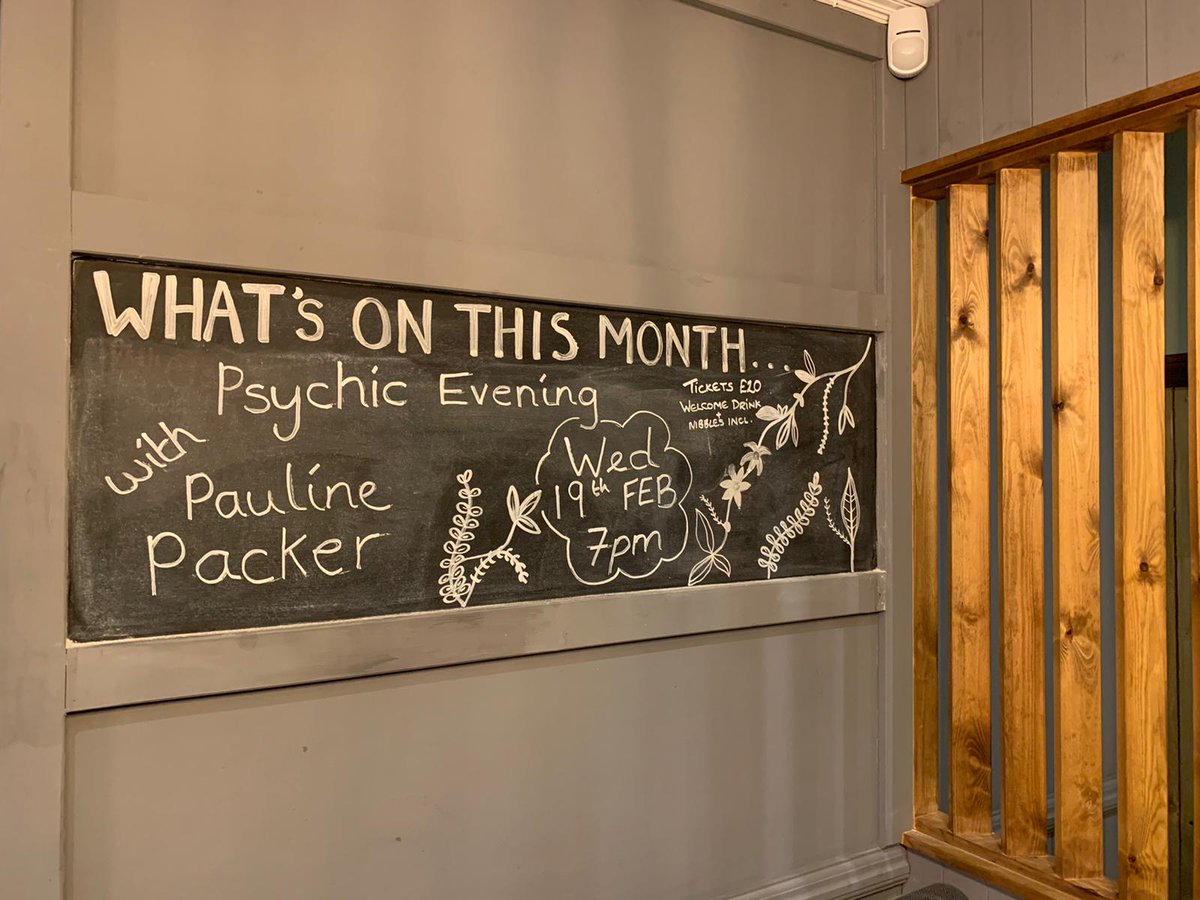 WHAT'S ON THIS MONTH...
Psychic Evening
with
Pauline
Packer
Wed
19th FEB
7pm
TICKETS £20
WELCOME DRINK
+
NIBBLES INCL.